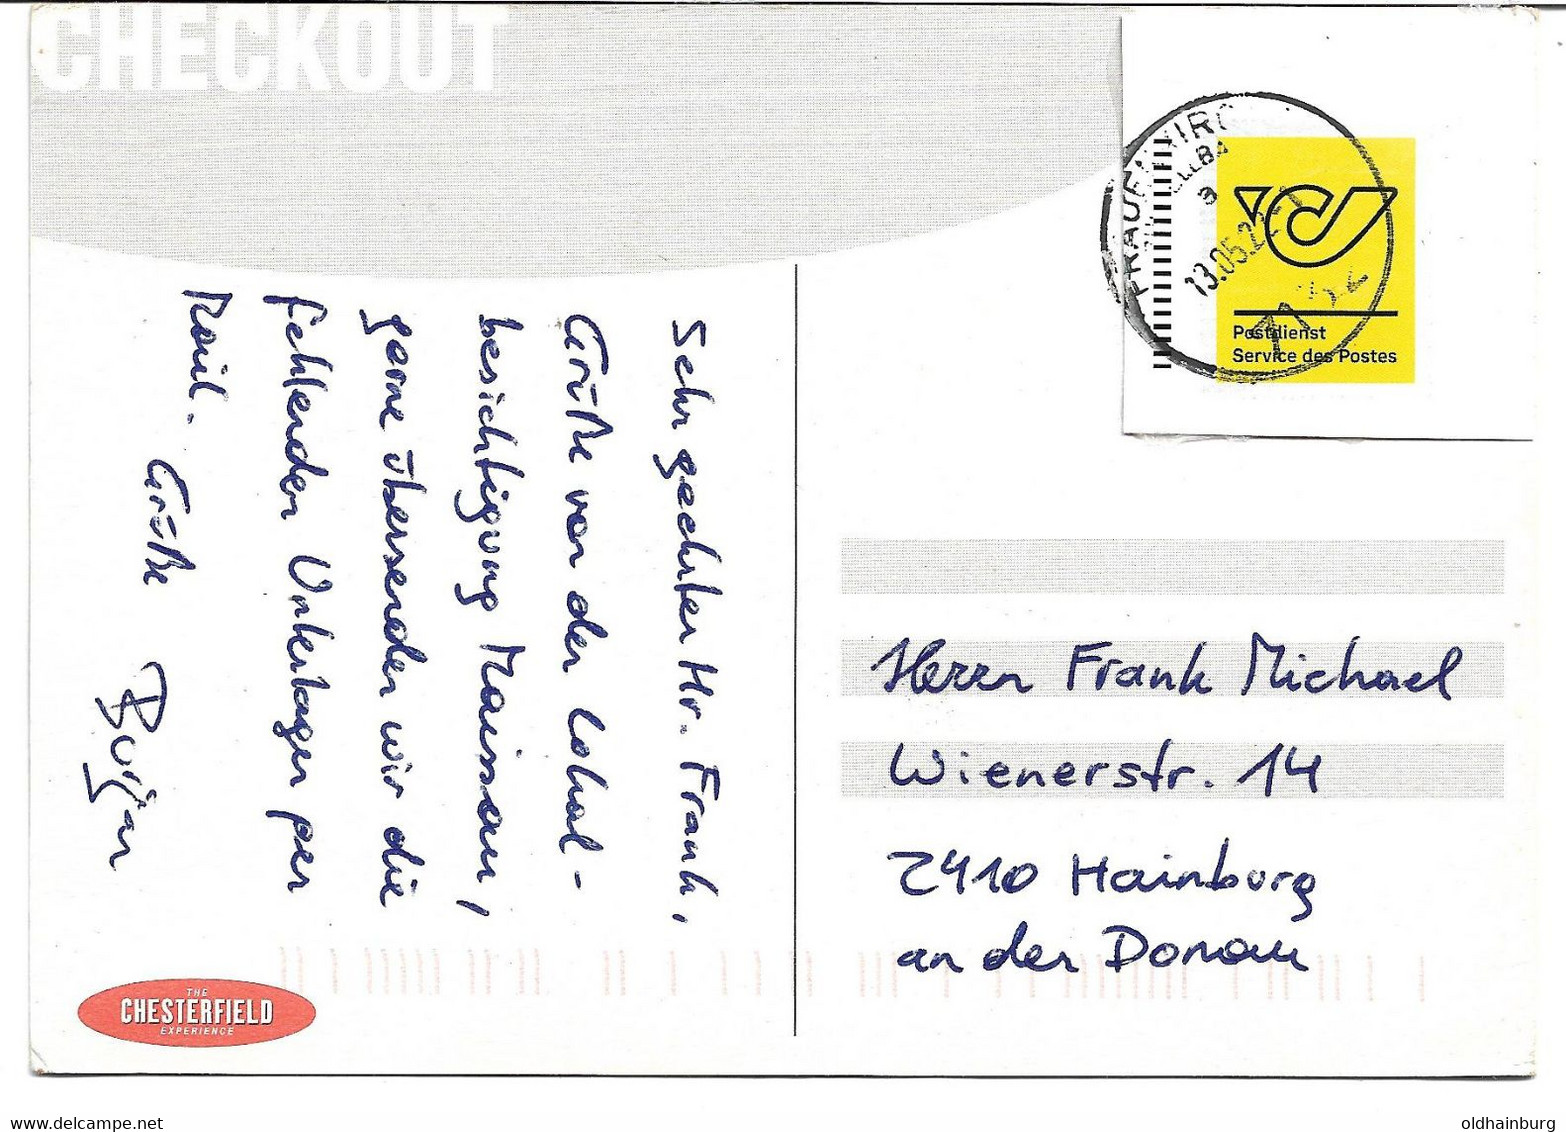 CHECKOUT
FRAUENKIRC
13.05.22
Postdienst
Service des Postes
Sehr geehrter Hr. Frank,
Grüße von der Lokal-
besichtigung Maissau,
gerne übersenden wir die
fehlenden Unterlagen per
Mail.
Grüße
Herrn Frank Michael
Wienerstr. 14
2410 Hainburg
an der Donau
THE
CHESTERFIELD
EXPERIENCE
www.delcampe.net
oldhainburg